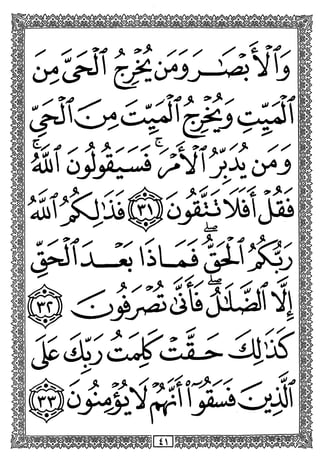 وَٱلۡأَبۡصَٰرَ وَمَن يُخۡرِجُ ٱلۡحَيَّ مِنَ
ٱلۡمَيِّتِ وَيُخۡرِجُ ٱلۡمَيِّتَ مِنَ ٱلۡحَيِّ
وَمَن يُدَبِّرُ ٱلۡأَمۡرَۚ فَسَيَقُولُونَ ٱللَّهُۚ
فَقُلۡ أَفَلَا تَتَّقُونَ ٣١ فَذَٰلِكُمُ ٱللَّهُ
رَبُّكُمُ ٱلۡحَقُّۖ فَمَاذَا بَعۡدَ ٱلۡحَقِّ
إِلَّا ٱلضَّلَٰلُۖ فَأَنَّىٰ تُصۡرَفُونَ ٣٢
كَذَٰلِكَ حَقَّتۡ كَلِمَتُ رَبِّكَ عَلَى
ٱلَّذِينَ فَسَقُوٓاْ أَنَّهُمۡ لَا يُؤۡمِنُونَ ٣٣
٤١